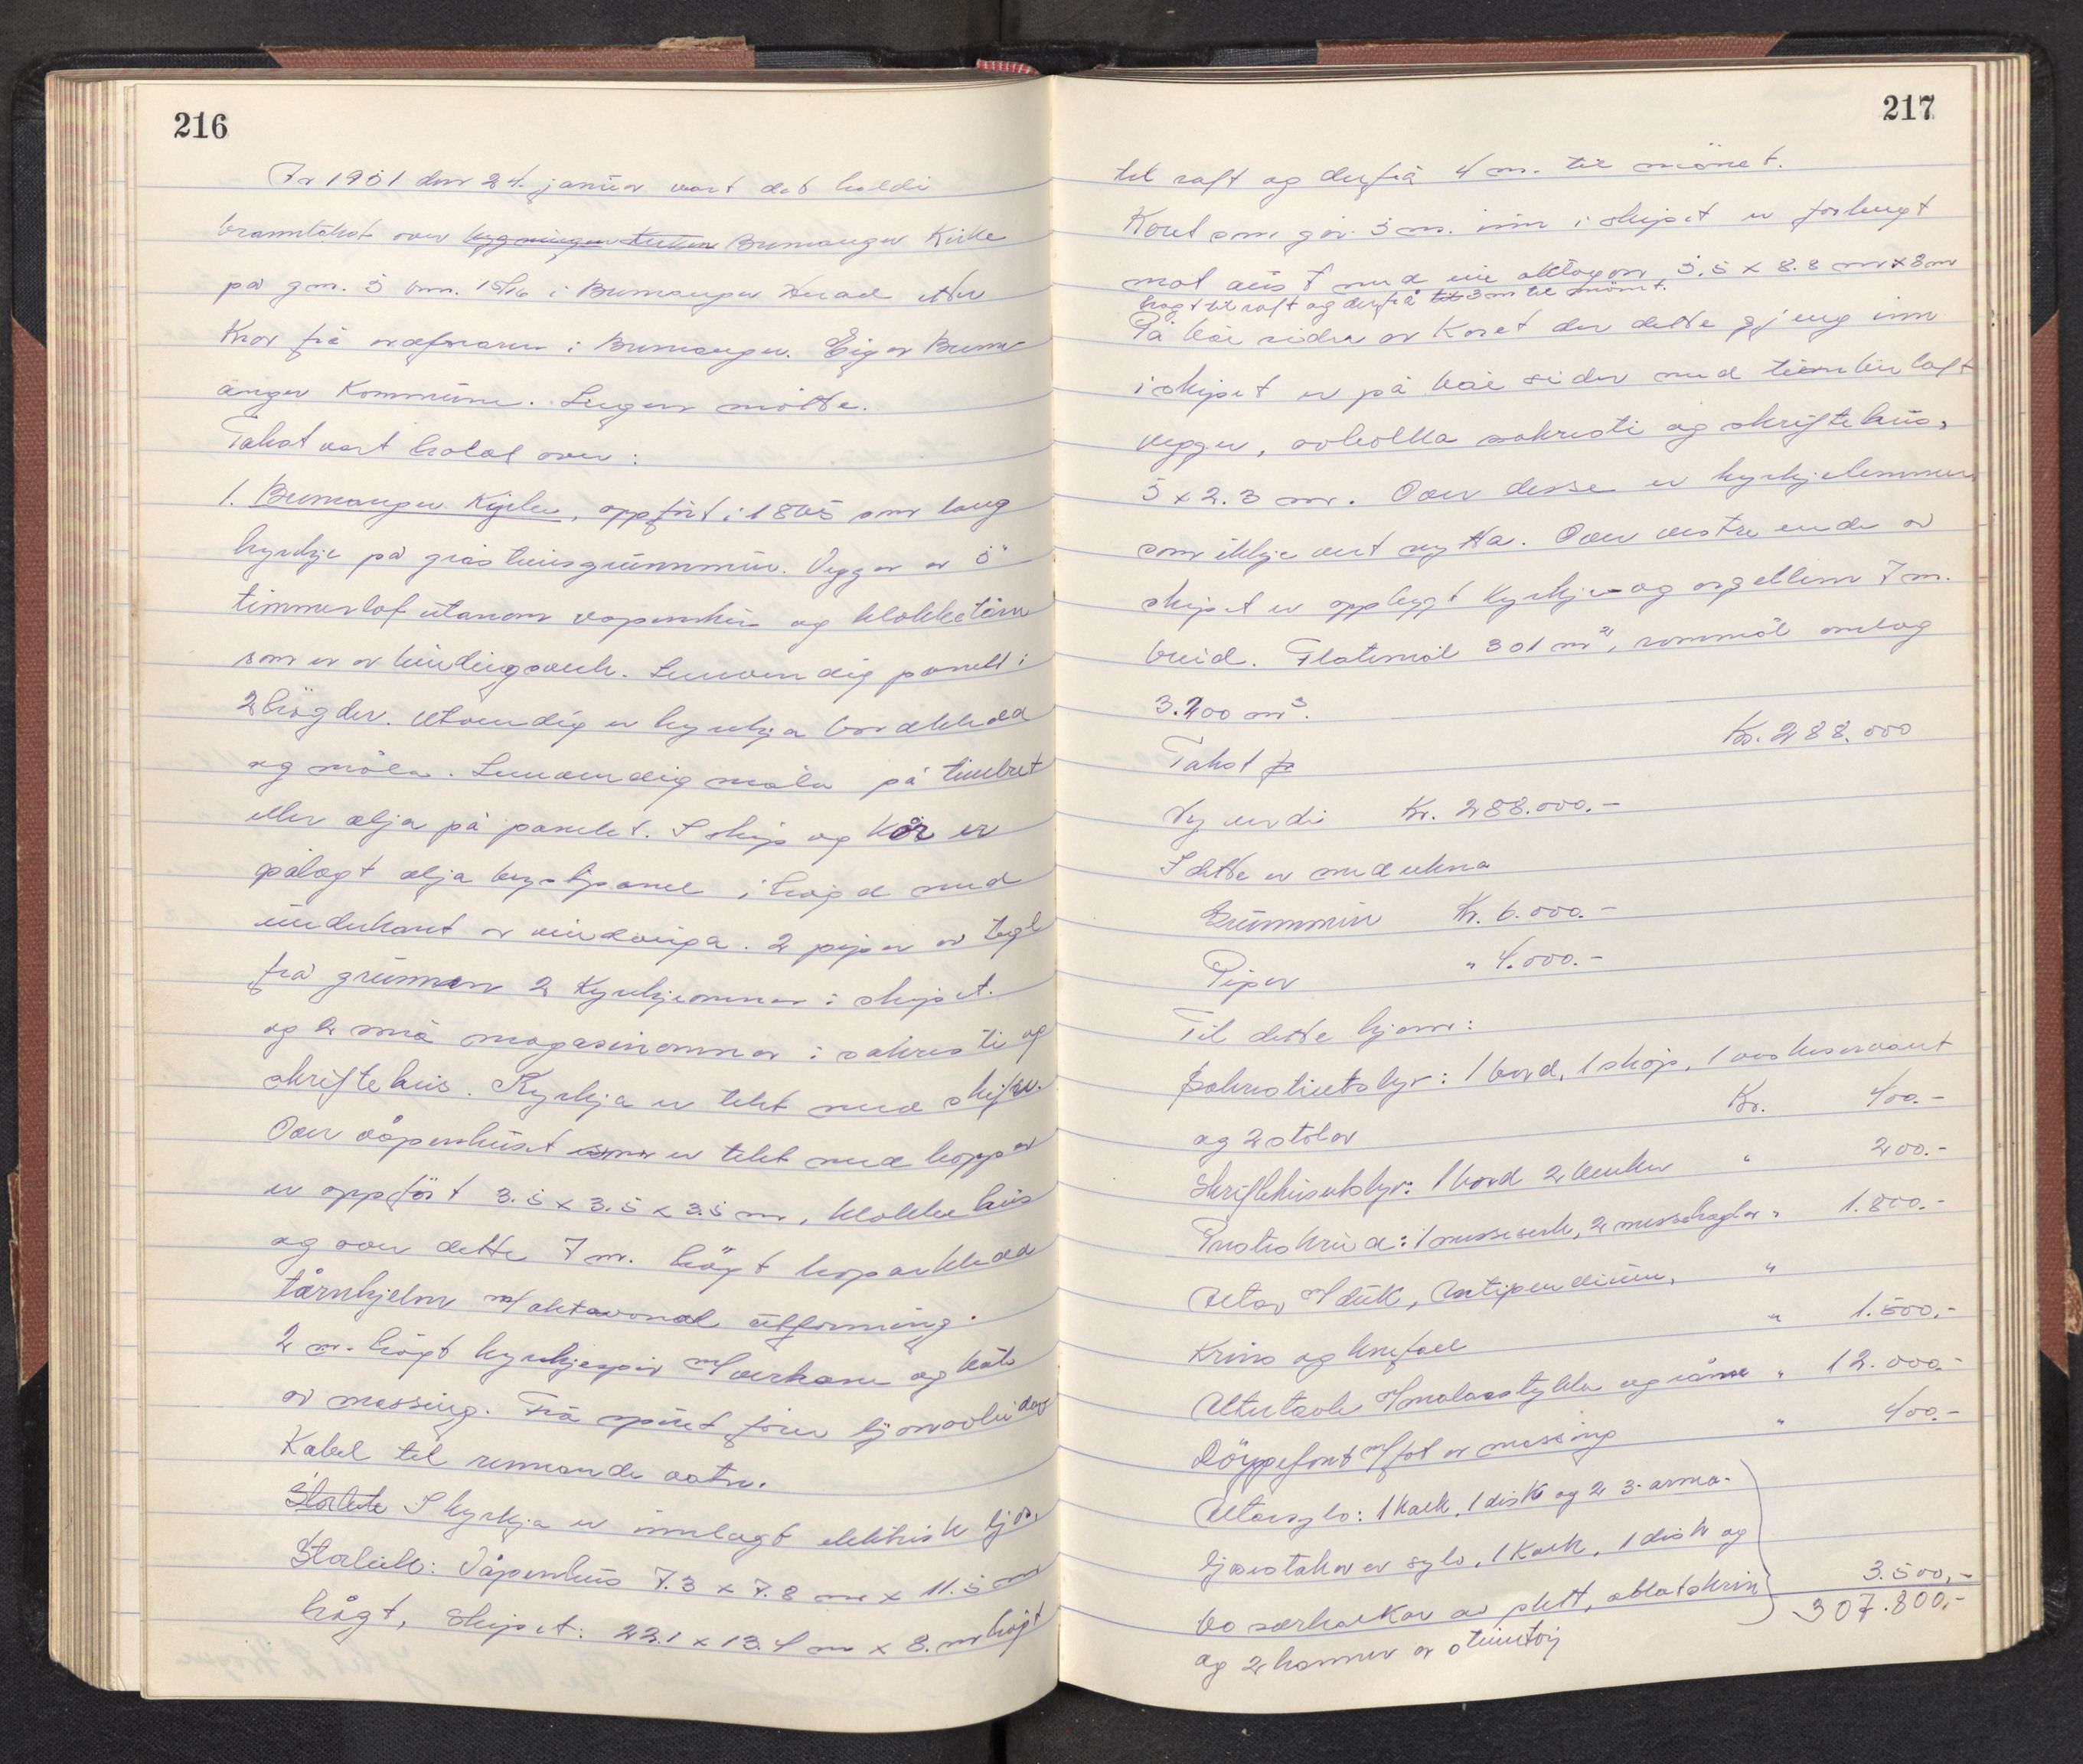 216
År 1951 den 24. januar vart det haldi
branntakst over bygningen kirken Bremanger Kirke
på gnr. 5 bnr. 15/16 i Bremanger Herad etter
Krav frå ordføraren i Bremanger. Eigar Brem-
anger Kommune. Ingen møtte.
Takst vart halde over:
1. Bremanger Kyrkje, oppført i 1865 som lang
kyrkje på gråsteinsgrunnmur. Veggar er 5"
timmerlaft utanom vapenhus og klokketårn
som er av bindingsverk. Innvendig panelt i
2 högder. Utvendig er kyrkja bordkledd
og måla. Innvendig måla på timbret
eller olja på panelet. I skip og kor er
pålagt olja brystpanel i högd med
underkant av vindauga. 2 piper av tegl
frå grunnen 2 Kyrkjeomnar i skipet.
og 2 små magasinomnar i sakristi og
skriftehus. Kyrkja er tekt med skifer.
Over våpenhuset som er tekt med koppar
er oppført 3.5 x 3.5 x 3.5 m, klokkehus
og over dette 7 m. högt koparkledd
tårnhjelm m/ oktavonal utforming.
2 m. högt kyrkjespir m/ verhane og kule
av messing. Frå spiret fører ljonavleidar
Kabel til rennande vatn.
Storleik I kyrkja er innlagt elektrisk ljos.
Storleik: Våpenhus 7.3 x 7.8 m x 11.5 m
högt, Skipet: 22.1 x 13.4 m x 8. m högt
217
til raft og derfrå 4 m. til mönet.
Koret som går 3 m. inn i skipet er forlengt
mot aust med ein oktogon, 5.5 x 8.8 m x 8 m
högt til raft og derfrå til 3 m til mönet.
På båe sider av Koret der dette gjeng inn
i skipet er på båe sider med timbürlaft
vegger, avkolka sakristi og skriftehus,
5 x 2.3 m. Over desse er kyrkjelemmer
som ikkje vert nytta. Over vestre ende av
skipet er oppbygt kyrkje- og orgellem 7 m.
breid. Flatemål 301 m², rommål omlag
3.200 m³.
Takst kr Kr. 288.000
Ny verdi Kr. 288.000.-
I dette er medrekna
Grunnmur Kr. 6.000.-
Piper " 4.000.-
Til dette kjem:
Sakristiutstyr: 1 bord, 1 skåp, 1 vaskeservant
og 2 stolar Kr. 400.-
Skriftehusutstyr: 1 bord 2 benker " 200.-
Presteskrud: 1 messeserk, 2 messehaglar " 1.800.-
Altar m/ duk, Antipendium, "
Krins og knefall " 1.500.-
Altertavle m/ malarstykke og ramme " 12.000.-
Döypefont m/ fat av messing " 400.-
Altarsylv: 1 kalk, 1 disk og 2 3-arma-
ljosestakar av sylv, 1 Kalk, 1 disk og
60 særkalkar av plett, oblatskrin
og 2 kanner av stentöy 3.500,-
307.800,-